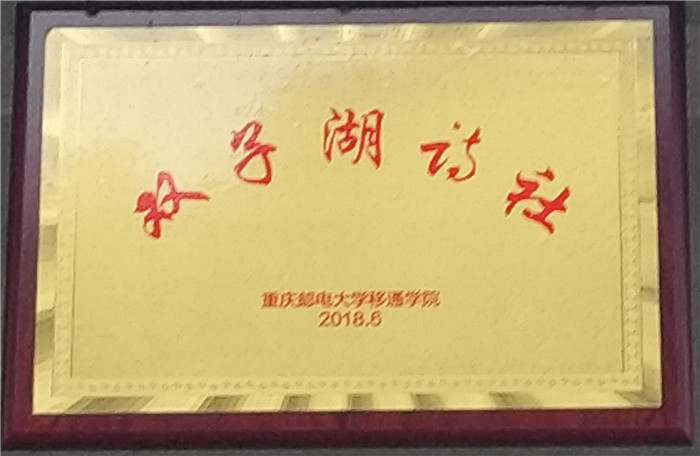 双子湖诗社
重庆邮电大学移通学院
2018.6